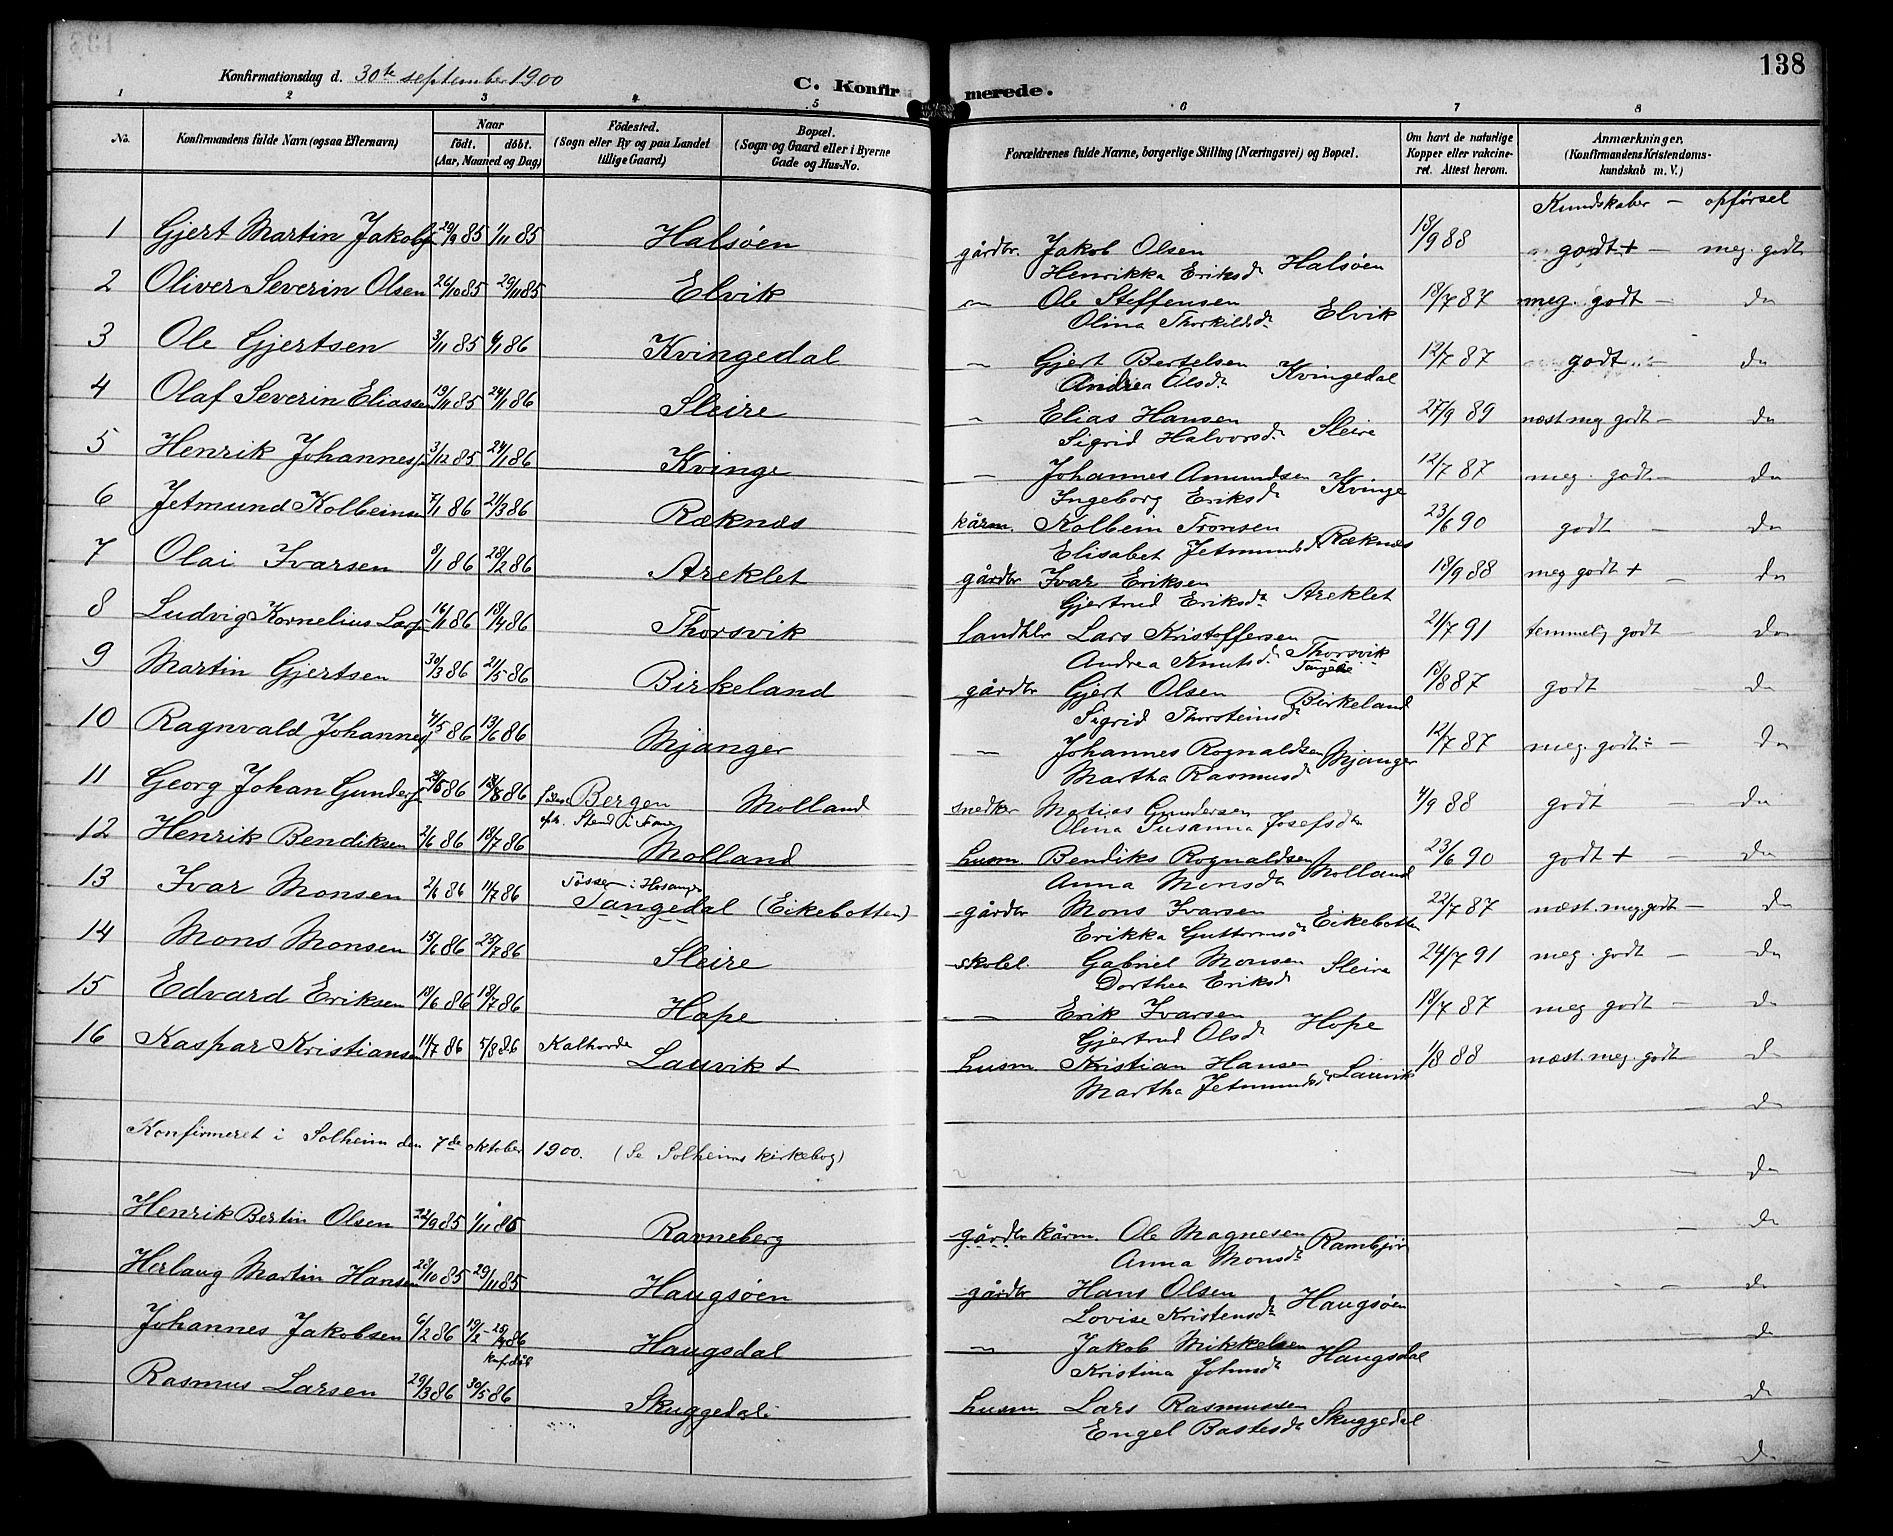 138
Konfirmationsdag d. 30te september 1900
C. Konfirmerede.
1 2 3 4 5 6 7 8
No.
Konfirmandens fulde Navn (ogsaa Efternavn)
Naar
födt. döbt.
(Aar, Maaned og Dag)
Födested.
(Sogn eller By og paa Landet
tillige Gaard)
Bopæl.
(Sogn og Gaard eller i Byerne
Gade og Hus-No.
Forældrenes fulde Navne, borgerlige Stilling (Næringsvei) og Bopæl.
Om havt de naturlige
Kopper eller vakcine-
ret. Attest herom.
Anmærkninger,
(Konfirmandens Kristendoms-
kundskab m. V.)
Kundskaber - opførsel
1 Gjert Martin Jakobs 29/9 85 1/11 85 Halsöen gårdbr. Jakob Olsen 18/9 88 godt + - meg. godt
Henrikka Eriksdr Halsöen
2 Oliver Severin Olsen 26/10 85 29/11 85 Elvik " Ole Steffensen 18/7 87 meg. godt - do
Olina Thorkildsdr Elvik
3 Ole Gjertsen 3/11 85 6/1 86 Kvingedal " Gjert Bertelsen 12/7 87 godt - do
Andrea Olsdr Kvingedal
4 Olaf Severin Eliassen 19/11 85 24/1 86 Sleire " Elias Hansen 27/9 89 næst meg godt - do
Sigrid Halvorsdr Sleire
5 Henrik Johanness 3/12 85 24/1 86 Kvinge " Johannes Amundsen 12/7 87 meg. godt - do
Ingeborg Eriksdr Kvinge
6 Jetmund Kolbeinsen 7/1 86 21/3 86 Ræknæs kårm. Kolbein Tronsen 23/6 90 godt - do
Elisabet Jetmundsdr Ræknæs
7 Olai Ivarsen 9/1 86 28/2 86 Areklet gårdbr Ivar Eriksen 18/9 88 meg godt + - do
Gjertrud Eriksdr Areklet
8 Ludvig Kornelius Lars 16/1 86 18/4 86 Thorsvik landhlr Lars Kristoffersen 21/7 91 temmelig godt - do
Andrea Knutsdr Thorsvik
9 Martin Gjertsen 30/3 86 21/5 86 Birkeland gårdbr Gjert Olsen 18/8 87 godt - do
Sigrid Thorsteinsdr Birkeland
10 Ragnvald Johanness 4/5 86 13/6 86 Mjanger " Johannes Rognaldsen 12/7 87 meg. godt ÷ - do
Martha Rasmusdr Mjanger
11 Georg Johan Gunders 86 18/8 86 Bergen Molland snedker Matias Gundersen 4/9 88 godt - do
Stend i Fane Olina Susanna Josefsdr
12 Henrik Bendiksen 2/6 86 18/7 86 Molland husm. Bendiks Rognaldsen 23/6 90 godt + - do
Anna Monsdr Molland
13 Ivar Monsen 2/6 86 11/7 86 Tössen i Hosanger gårdbr Mons Ivarsen 22/7 87 næst. meg. godt - do
Tangedal (Eikebotten) Erikka Guttormsdr Eikebotten
14 Mons Monsen 15/6 86 25/7 86 Sleire skolel. Gabriel Monsen 24/7 91 meg. godt - do
Dorthea Eriksd Sleire
15 Edvard Eriksen 18/6 86 18/7 86 Hope " Erik Ivarsen 18/7 87 meg godt - do
Gjertrud Olsdr Hope
16 Kaspar Kristiansen 11/7 86 5/8 86 Kalhovde Lauvik + husm. Kristian Hansen 1/8 88 næst. meg. godt - do
Martha Jetmundsdr Lauvik
- do
Konfirmeret i Solheim den 7de oktober 1900. (Se Solheims kirkebog)
- do
Henrik Bertin Olsen 22/9 85 1/11 85 Ravneberg gårdbr kårm. Ole Magnesen - do
Anna Monsdr
Herlaug Martin Hansen 28/10 85 29/11 85 Haugsöen gårdbr Hans Olsen - do
Lovise Kristensdr Haugsöen
Johannes Jakobsen 6/2 86 Haugsdal " Jakob Mikkelsen - do
Kristina Johnsdr Haugsdal
Rasmus Larsen 29/3 86 30/5 86 Skuggedal husm Lars Rasmussen - do
Engel Bastesdr Skuggedal
- do